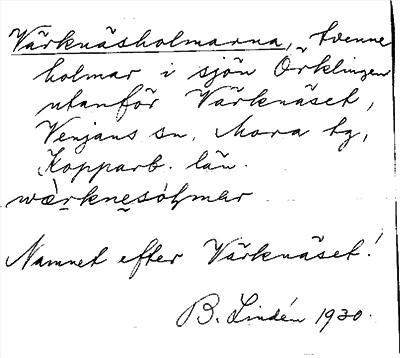 Värknäsholmarna, tvenne
holmar i sjön Örklingen
utanför Värknäset,
Venjans sn, Mora tg,
Kopparb. län.
wærknesòḷmar
Namnet efter Värknäset!
B. Lindén 1930.